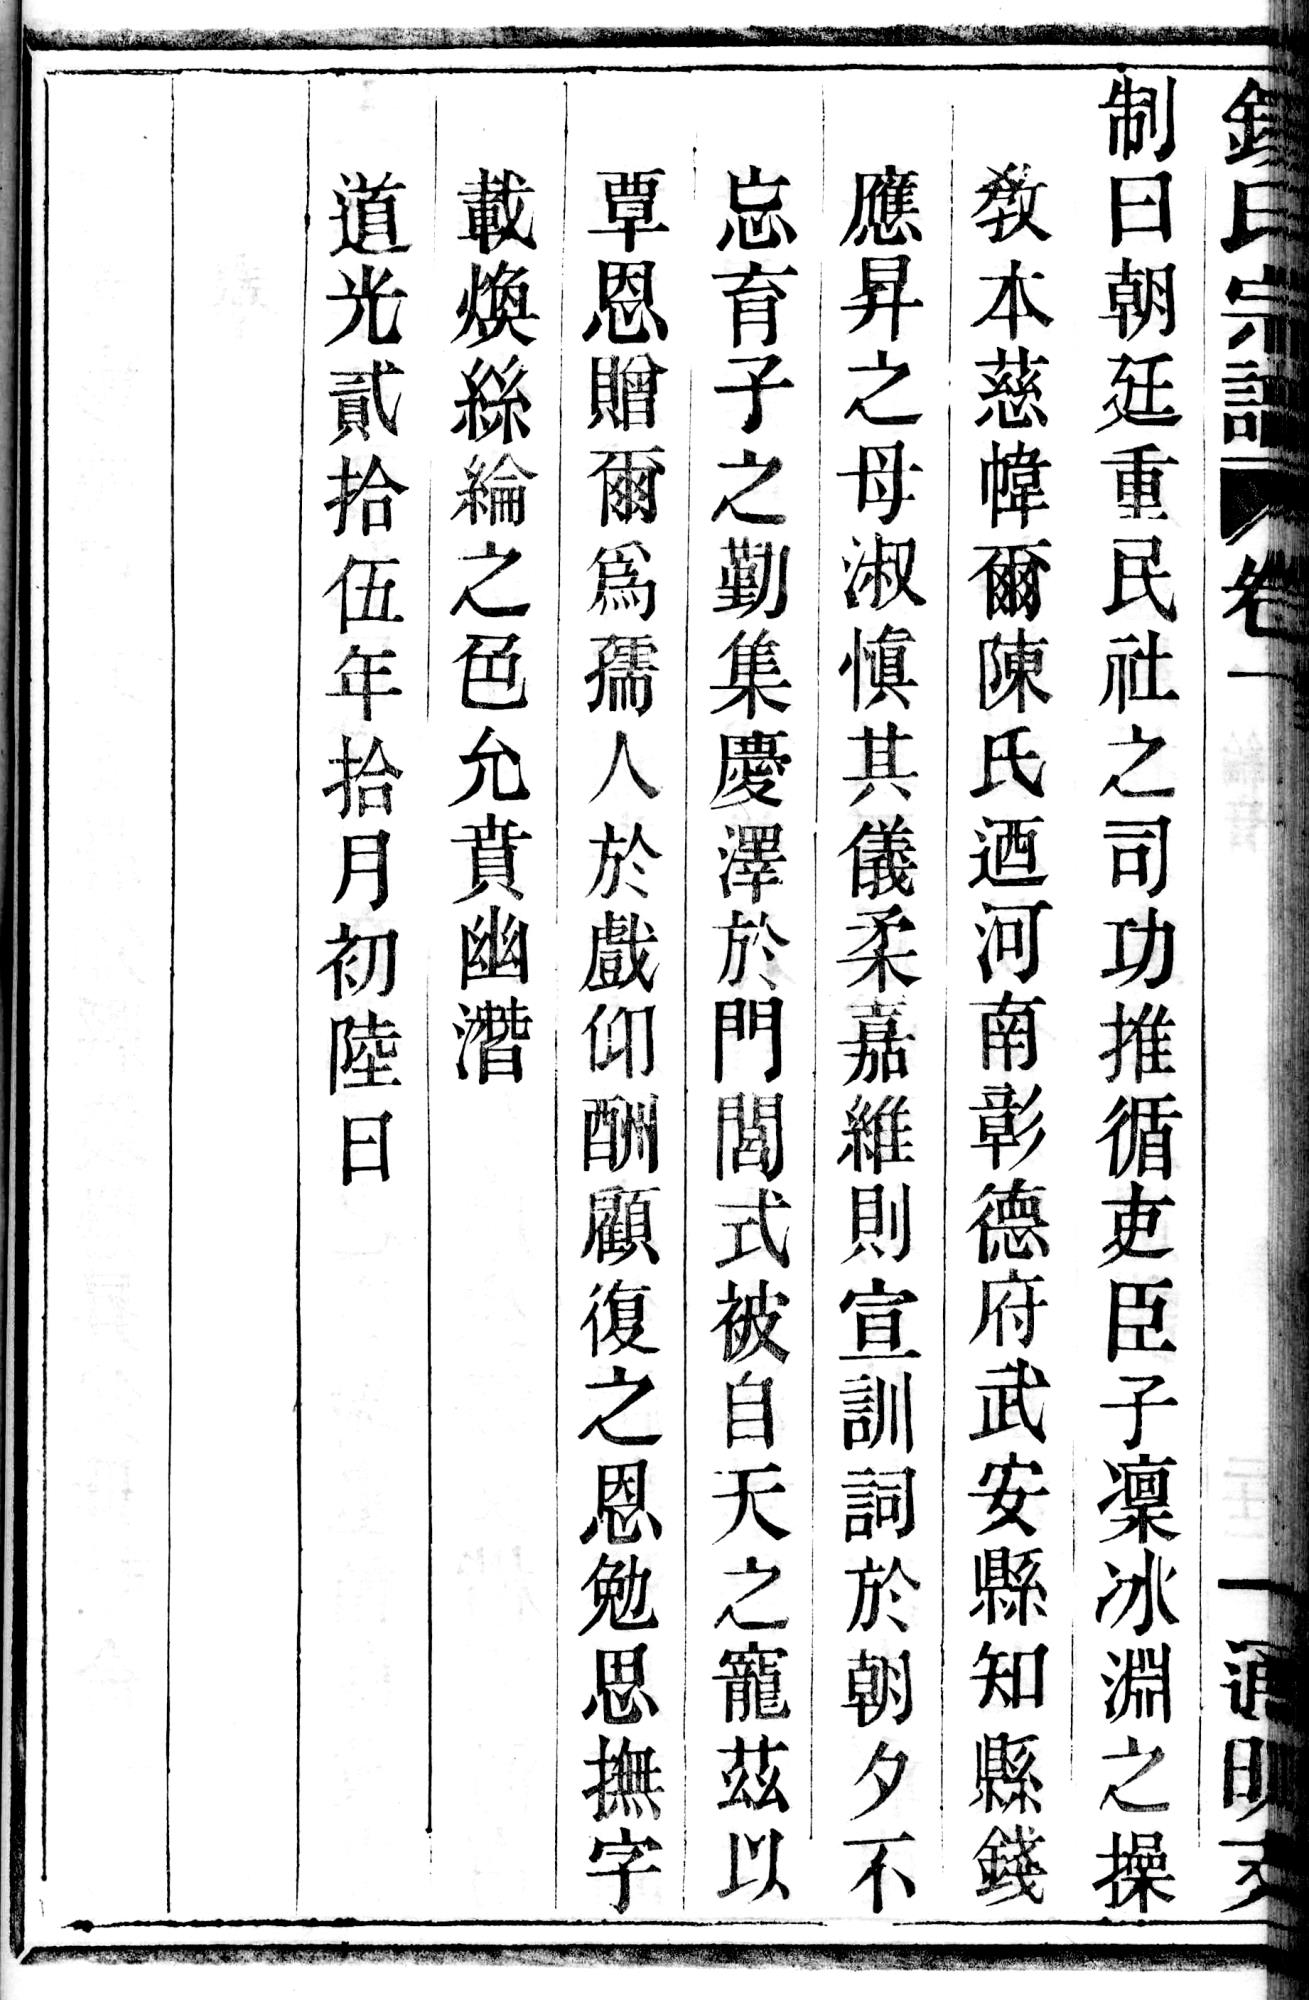 錢氏宗譜 卷一 通明支
制曰朝廷重民社之司功推循吏臣子凜冰淵之操
教本慈幃爾陳氏迺河南彰德府武安縣知縣錢
應昇之母淑慎其儀柔嘉維則宣訓詞於朝夕不
忘育子之勤集慶澤於門閭式被自天之寵茲以
覃恩贈爾爲孺人於戲仰酬顧復之恩勉思撫字
載煥絲綸之色允賁幽潛
道光貳拾伍年拾月初陸日